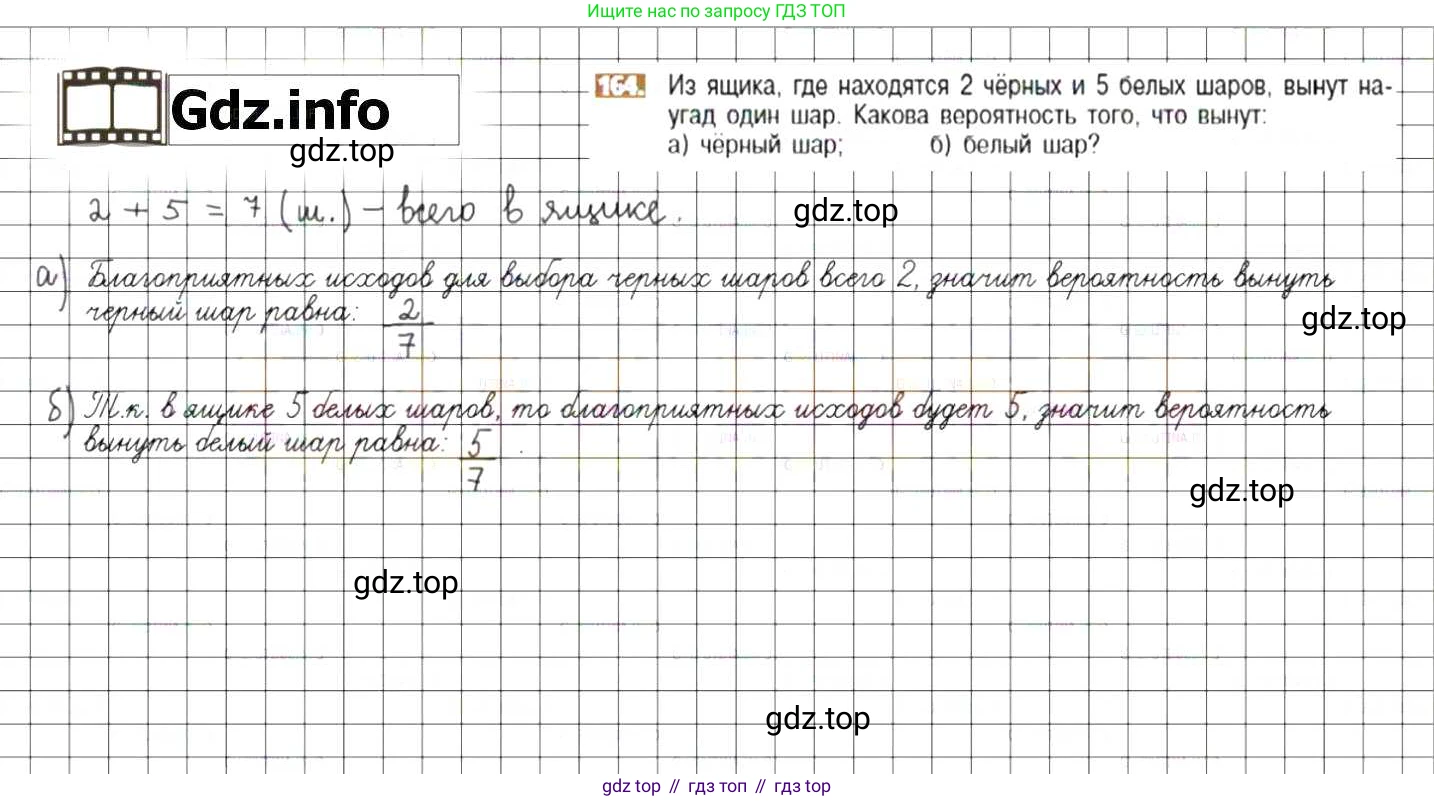 Ищите нас по запросу ГДЗ ТОП
Gdz.info
gdz.top
164. Из ящика, где находятся 2 чёрных и 5 белых шаров, вынут на-
угад один шар. Какова вероятность того, что вынут:
а) чёрный шар; б) белый шар?
2 + 5 = 7 (ш.) – всего в ящике.
gdz.top
а) Благоприятных исходов для выбора черных шаров всего 2, значит вероятность вынуть
черный шар равна: 2/7
gdz.top
б) Т.к. в ящике 5 белых шаров, то благоприятных исходов будет 5, значит вероятность
вынуть белый шар равна: 5/7.
gdz.top
gdz.top
gdz.top
gdz top // гдз топ // гдз top